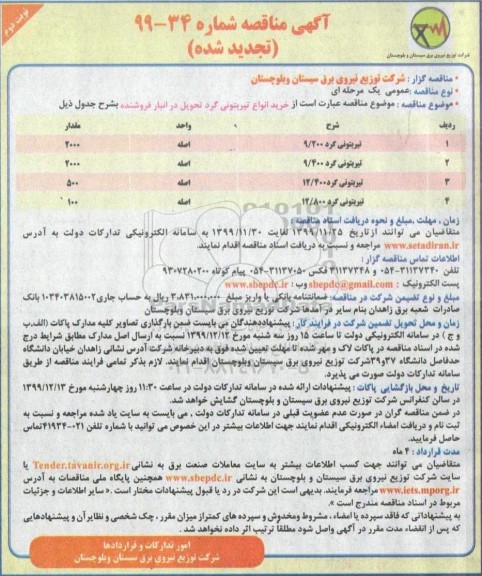 نوبت دوم
آگهی مناقصه شماره ۳۴-۹۹
(تجدید شده)
شرکت توزیع نیروی برق سیستان و بلوچستان
• مناقصه گزار : شرکت توزیع نیروی برق سیستان وبلوچستان
• نوع مناقصه :عمومی یک مرحله ای
• موضوع مناقصه : موضوع مناقصه عبارت است از خرید انواع تیربتونی گرد تحویل در انبار فروشنده بشرح جدول ذیل
ردیف شرح واحد مقدار
۱ تیربتونی گرد ۹/۲۰۰ اصله ۲۰۰۰
۲ تیربتونی گرد ۹/۴۰۰ اصله ۲۰۰۰
۳ تیربتونی گرد۱۲/۴۰۰ اصله ۵۰۰
۴ تیربتونی گرد ۱۲/۸۰۰ اصله ۱۰۰
زمان ، مهلت ,مبلغ و نحوه دریافت اسناد مناقصه
متقاضیان می توانند ازتاریخ ۱۳۹۹/۱۱/۲۵ لغایت ۱۳۹۹/۱۱/۳۰ به سامانه الکترونیکی تدارکات دولت به آدرس
www.setadiran.ir مراجعه و نسبت به دریافت اسناد مناقصه اقدام نمایند.
اطلاعات تماس مناقصه گزار :
تلفن ۳۱۱۳۷۲۴۰-۰۵۴ و ۳۱۱۳۷۲۴۸ فکس ۳۱۱۳۷۰۵۰-۰۵۴ پیام کوتاه ۹۳۰۷۲۸۰۲۰۰
پست الکترونیک : sbepdc@gmail.com وب : www.sbepdc.ir
مبلغ و نوع تضمین شرکت در مناقصه: ضمانتنامه بانکی یا واریز مبلغ ۳،۸۳۱،۰۰۰،۰۰۰ ریال به حساب جاری۱۰۳۴۰۳۸۱۵۰۰۲ بانک
صادرات شعبه برق زاهدان بنام سایر در آمدها شرکت توزیع نیروی برق سیستان وبلوچستان
زمان و محل تحویل تضمین شرکت در فرایند کار : پیشنهاددهندگان می بایست ضمن بارگذاری تصاویر کلیه مدارک پاکات (الف,ب
و ج ) در سامانه الکترونیکی دولت تا ساعت ۱۵ روز سه شنبه مورخ ۱۳۹۹/۱۲/۱۲ نسبت به ارسال اصل مدارک مطابق شرایط درج
شده در اسناد مناقصه در پاکات لاک و مهر شده تا مهلت تعیین شده فوق به دبیرخانه شرکت آدرس نشانی زاهدان خیابان دانشگاه
حدفاصل دانشگاه ۳۷و۳۹شرکت توزیع نیروی برق سیستان وبلوچستان اقدام نمایند. لازم بذکر تمامی فرایند مناقصه از طریق
سامانه تدارکات دولت صورت می پذیرد.
تاریخ و محل بازگشایی پاکات : پیشنهادات ارائه شده در سامانه تدارکات دولت در ساعت ۱۱:۳۰ روز چهارشنبه مورخ ۱۳۹۹/۱۲/۱۳
در سالن کنفرانس شرکت توزیع نیروی برق سیستان و بلوچستان گشایش خواهد شد.
در ضمن مناقصه گران در صورت عدم عضویت قبلی در سامانه تدارکات دولت , می بایست به سایت یاد شده مراجعه و نسبت به
ثبت نام و دریافت امضاء الکترونیکی اقدام نمایند جهت اطلاعات بیشتر در این خصوص می توانید با شماره تلفن ۰۲۱-۴۱۹۳۴تماس
حاصل فرمایید.
مدت قرارداد : ۴ ماه
متقاضیان می توانند جهت کسب اطلاعات بیشتر به سایت معاملات صنعت برق به نشانی Tender.tavanir.org.ir یا
سایت شرکت توزیع نیروی برق سیستان و بلوچستان به نشانی www.sbepdc.ir همچنین پایگاه ملی مناقصات به آدرس
www.iets.mporg.ir مراجعه فرمایند. بدیهی است این شرکت در رد یا قبول پیشنهادات مختار است .« سایر اطلاعات و جزئیات
مربوط در اسناد مناقصه مندرج است ».
به پیشنهاداتی که فاقد سپرده یا امضاء ، مشروط ومخدوش و سپرده های کمتراز میزان مقرر، چک شخصی و نظایرآن و پیشنهادهایی
که پس از انقضاء مدت مقرر در آگهی واصل شود مطلقا ترتیب اثر داده نخواهد شد.
امور تدارکات و قراردادها
شرکت توزیع نیروی برق سیستان وبلوچستان